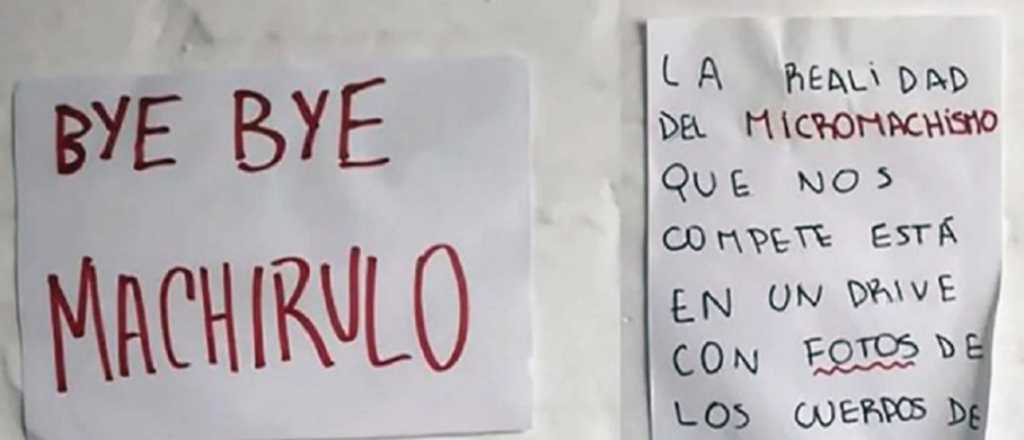 BYE BYE
MACHIRULO
LA REALIDAD
DEL MICROMACHISMO
QUE NOS
COMPETE ESTÁ
EN UN DRIVE
CON FOTOS DE
LOS CUERPOS DE